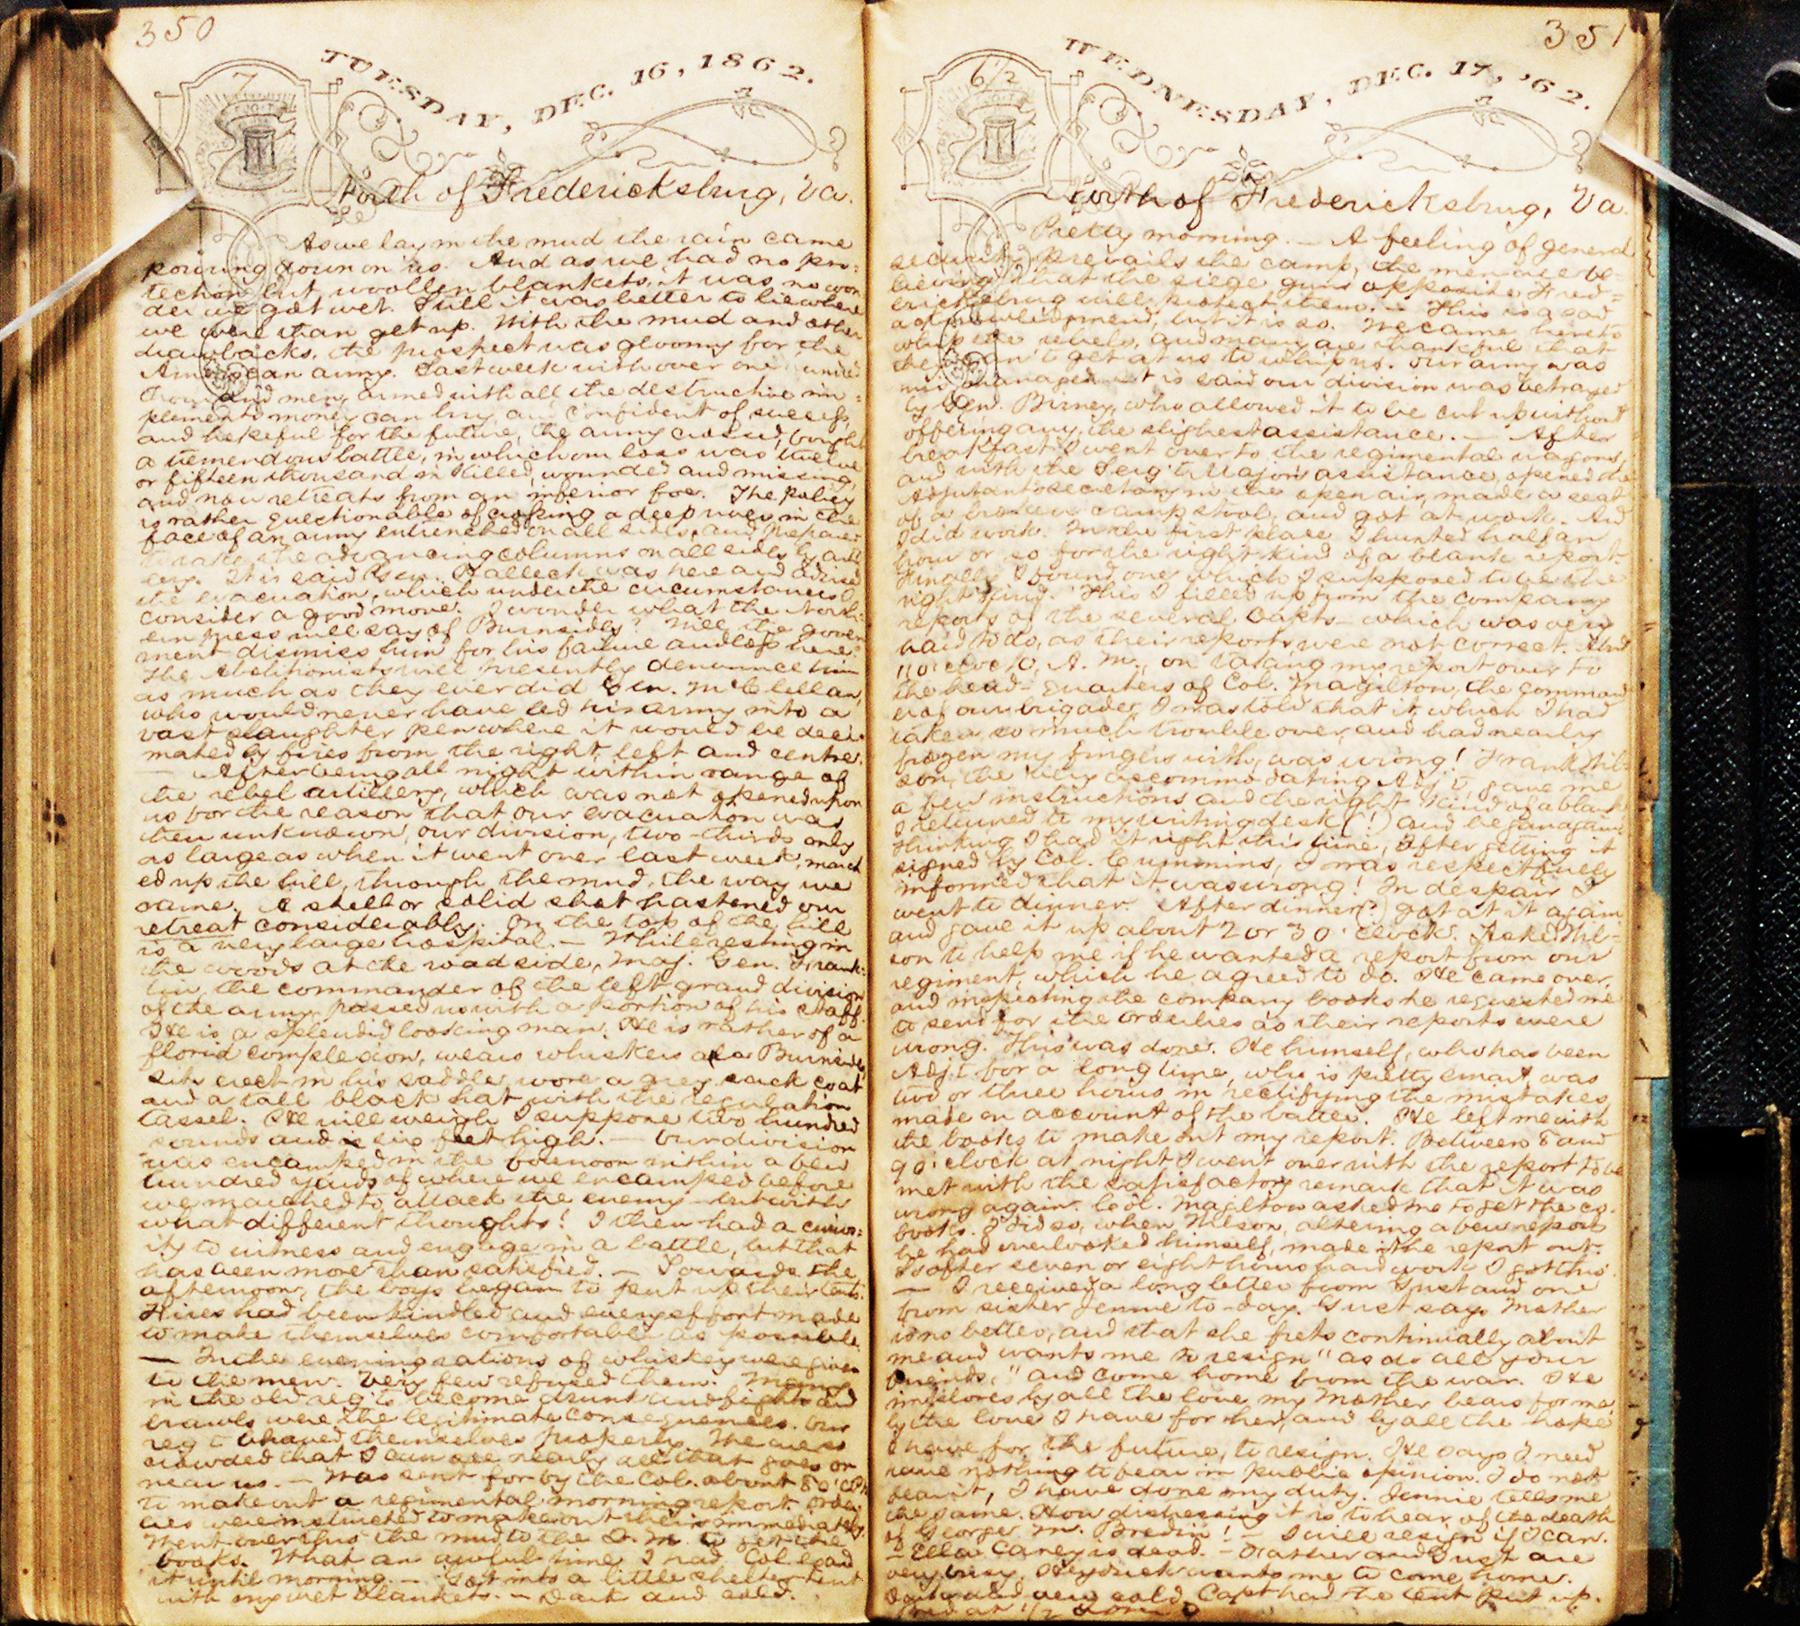 350
7
TUESDAY, DEC. 16, 1862.
North of Fredericksburg, Va.
As we lay in the mud the rain came
pouring down on us. And as we had no pro-
tection but woollen blankets, it was no won
der we got wet. Still it was better to lie where
we were than get up. With the mud and other
drawbacks, the prospect was gloomy for the
American army. Last week with over one hundred
thousand men, armed with all the destructive im-
plements money can buy, and confident of success,
and hopeful for the future, the army crossed, fought
a tremendous battle, in which our loss was twelve
or fifteen thousand in killed, wounded and missing,
and now retreats from an inferior foe. The policy
is rather questionable of crossing a deep river, in the
face of an army entrenched on all sides, and prepared
to rake the advancing columns on all sides by artil
lery. It is said Gen. Halleck was here and advised
the evacuation, which under the circumstances I
consider a good move. I wonder what the North-
ern press will say of Burnside? Will the govern
ment dismiss him for his failure and loss here?
The Abolitionists will presently denounce him
as much as they ever did Gen. McClellan,
who would never have led his army into a
vast slaughter pen where it would be deci-
mated by fires from the right, left and centre.
— After being all night within range of
the rebel artillery, which was not opened upon
us for the reason that our evacuation was
then unknown, our division, two-thirds only
as large as when it went over last week, march
ed up the hill, through the mud, the way we
came. A shell or solid shot hastened our
retreat considerably. On the top of the hill
is a very large hospital. — While resting in
the woods at the road side, Maj. Gen. Frank-
lin, the commander of the left grand division
of the army passed us with a portion of his staff.
He is a splendid looking man. He is rather of a
florid complexion, wears whiskers a la Burnside,
sits erect in his saddle, wore a grey sack coat
and a tall black hat with the regulation
tassel. He will weigh I suppose two hundred
pounds and is six feet high. — Our division
was encamped in the forenoon within a few
hundred yards of where we encamped before
we marched to attack the enemy — but with
what different thoughts! I then had a curios-
ity to witness and engage in a battle, but that
has been more than satisfied. — Towards the
afternoon, the boys began to put up their tents.
Fires had been kindled and every effort made
to make themselves comfortable as possible.
— In the evening rations of whiskey were given
to the men. Very few refused them. Many
in the old reg't become drunk and fights and
brawls were the legitimate consequences. Our
reg't behaved themselves properly. We are so
crowded that I can see nearly all that goes on
near us. — Was sent for by the Col. about 8 o'cl'k
to make out a regimental morning report. Order
lies were instructed to make out theirs immediately.
Went over thro' the mud to the Q. M. to get the
books. What an awful time I had. Col. said
it until morning. — Got into a little shelter tent
with my wet blankets. — Dark and cold.
351
6 1/2
WEDNESDAY, DEC. 17, '62.
North of Fredericksburg, Va.
Pretty morning. — A feeling of general
security prevails the camp, the men all be-
lieving that the siege guns opposite Fred-
ericksburg will protect them. — This is a sad
acknowledgment, but it is so. We came here to
whip the rebels, and many are thankful that
they can't get at us to whip us. Our army was
mismanaged. It is said our division was betrayed
by Gen. Birney, who allowed it to be cut up without
offering any, the slightest assistance. — After
breakfast I went over to the regimental wagons,
and with the Serg't Major's assistance, opened the
Adjutant's secretary in the open air, made a seat
of a broken camp stool, and got at work. And
I did work. In the first place I hunted half an
hour or so for the right kind of a blank report.
Finally I found one which I supposed to be the
right kind. This I filled up from the company
reports of the several Capts — which was very
hard to do, as their reports were not correct. About
11 o'clock, A. M., on taking my report over to
the head-quarters of Col. Magilton, the command
er of our brigade, I was told that it, which I had
taken so much trouble over, and had nearly
frozen my fingers with, was wrong! Frank Wil-
son, the very accommodating Adj't, gave me
a few instructions and the right kind of a blank.
I returned to my writing desk (!) and began again.
Thinking I had it right this time, after getting it
signed by Col. Cummins, I was respectfully
informed that it was wrong! In despair I
went to dinner. After dinner (?) got at it again
and gave it up about 2 or 3 o'clock. Asked Wil-
son to help me if he wanted a report from our
regiment, which he agreed to do. He came over,
and inspecting the company books he requested me
to send for the Orderlies as their reports were
wrong. This was done. He himself, who has been
Adj't for a long time, who is pretty smart, was
two or three hours in rectifying the mistakes
made on account of the battle. He left me with
the books to make out my report. Between 8 and
9 o'clock at night I went over with the report to be
met with the satisfactory remark that it was
wrong again. Col. Magilton asked me to get the co.
books. I did so, when Wilson, altering a few reports
he had overlooked himself, made the report out.
So after seven or eight hours hard work I got thro'.
— I received a long letter from Gust and one
from sister Jennie to-day. Gust says Mother
is no better, and that she frets continually about
me and wants me to resign "as do all your
friends," and come home from the war. He
implores by all the love my Mother bears for me,
by the love I have for her, and by all the hope
I have for the future, to resign. He says I need
have nothing to fear in public opinion. I do not
fear it, I have done my duty. Jennie tells me
the same. How distressing it is to hear of the death
of George M. Bredin! — I will resign if I can.
— Ella Carey is dead. — Father and Gust are
very busy. Heydrick wants me to come home.
very cold. Capt had the tent put up.